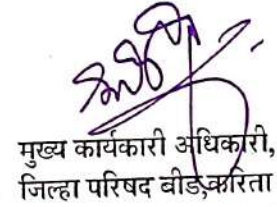 मुख्य कार्यकारी अधिकारी,
जिल्हा परिषद बीड,करिता